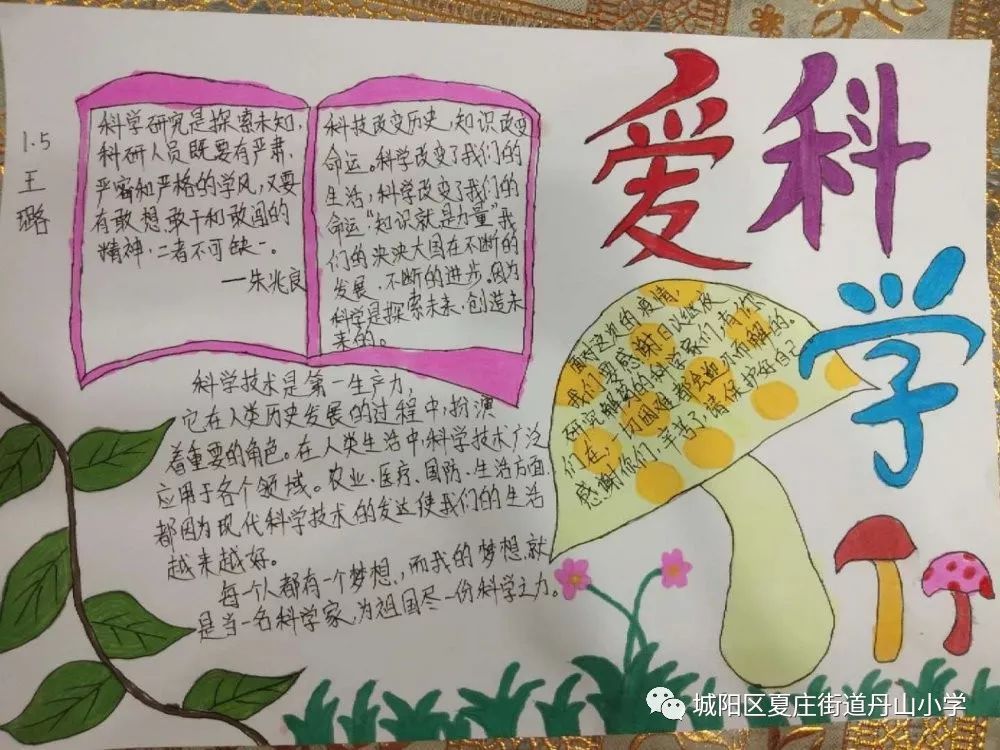 爱科学
1.5
王
璐
科学研究是探索未知,
科研人员既要有严肃、
严密和严格的学风,又要
有敢想、敢干和敢闯的
精神,二者不可缺一。
——朱兆良
科技改变历史,知识改变
命运。科学改变了我们的
生活,科学改变了我们的
命运,“知识就是力量”我
们的泱泱大国在不断的
发展、不断的进步。因为
科学是探索未来、创造未
来的。
科学技术是第一生产力,
它在人类历史发展的过程中,扮演
着重要的角色。在人类生活中科学技术广泛
应用于各个领域。农业、医疗、国防、生活方面,
都因为现代科学技术的发达使我们的生活
越来越好。
每个人都有一个梦想,,而我的梦想,就
是当一名科学家,为祖国尽一份科学之力。
面对这边的疫情,
我们要感谢日以继夜
研究解药的科学家们,有你
们在,一切困难都会迎刃而解的。
感谢你们,辛苦了,请保护好自己
城阳区夏庄街道丹山小学